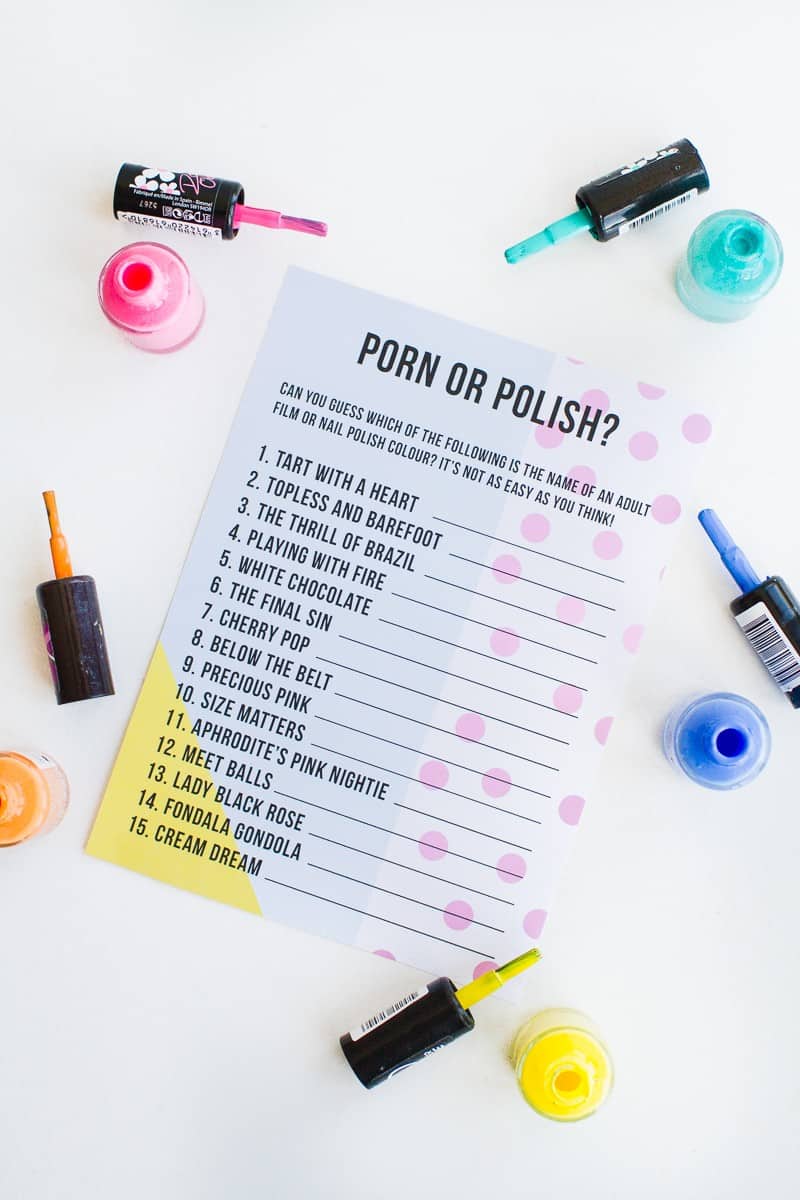 Fabriqué en/Made in Spain - Rimmel
London SW1H0DR
5267
PORN OR POLISH?
CAN YOU GUESS WHICH OF THE FOLLOWING IS THE NAME OF AN ADULT
FILM OR NAIL POLISH COLOUR? IT'S NOT AS EASY AS YOU THINK!
1. TART WITH A HEART
2. TOPLESS AND BAREFOOT
3. THE THRILL OF BRAZIL
4. PLAYING WITH FIRE
5. WHITE CHOCOLATE
6. THE FINAL SIN
7. CHERRY POP
8. BELOW THE BELT
9. PRECIOUS PINK
10. SIZE MATTERS
11. APHRODITE'S PINK NIGHTIE
12. MEET BALLS
13. LADY BLACK ROSE
14. FONDALA GONDOLA
15. CREAM DREAM